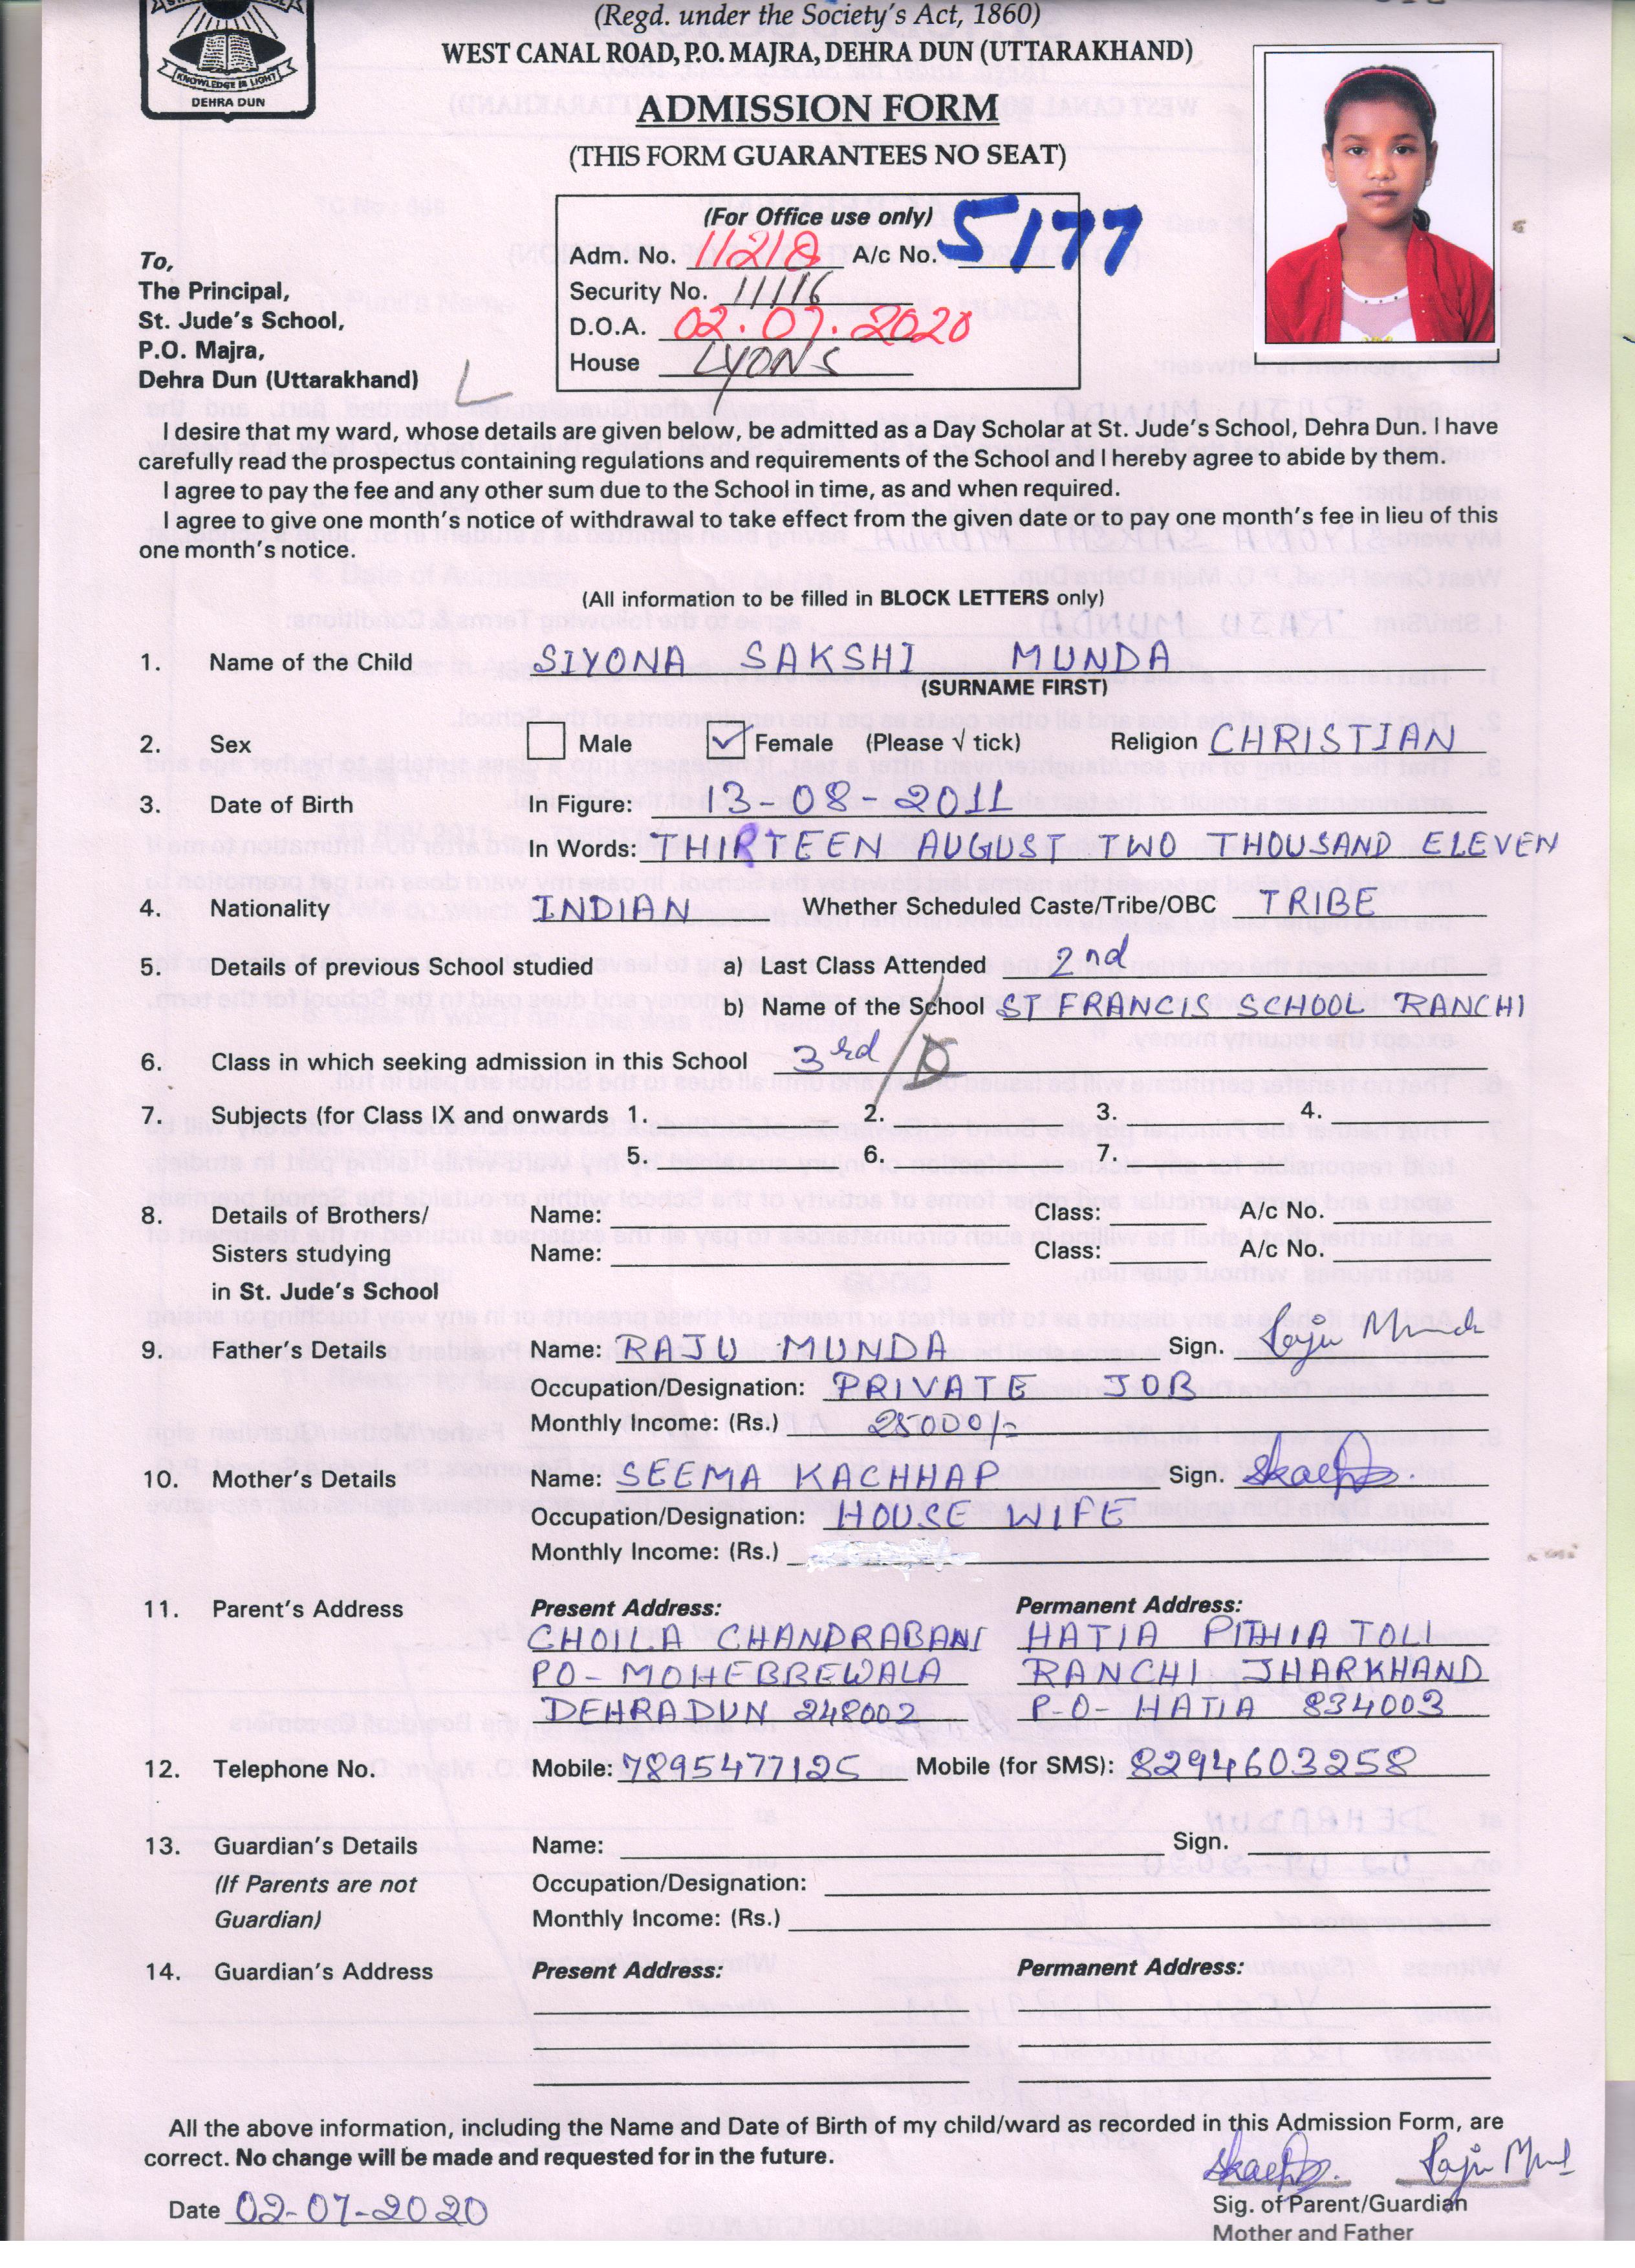 KNOWLEDGE IS LIGHT
DEHRA DUN
(Regd. under the Society's Act, 1860)
WEST CANAL ROAD, P.O. MAJRA, DEHRA DUN (UTTARAKHAND)
ADMISSION FORM
(THIS FORM GUARANTEES NO SEAT)
(For Office use only)
Adm. No. 11218 A/c No. 5177
Security No. 11116
D.O.A. 02.07.2020
House LYONS
To,
The Principal,
St. Jude's School,
P.O. Majra,
Dehra Dun (Uttarakhand)
I desire that my ward, whose details are given below, be admitted as a Day Scholar at St. Jude's School, Dehra Dun. I have
carefully read the prospectus containing regulations and requirements of the School and I hereby agree to abide by them.
I agree to pay the fee and any other sum due to the School in time, as and when required.
I agree to give one month's notice of withdrawal to take effect from the given date or to pay one month's fee in lieu of this
one month's notice.
(All information to be filled in BLOCK LETTERS only)
1. Name of the Child SIYONA SAKSHI MUNDA
(SURNAME FIRST)
2. Sex Male ✓ Female (Please √ tick) Religion CHRISTIAN
3. Date of Birth In Figure: 13-08-2011
In Words: THIRTEEN AUGUST TWO THOUSAND ELEVEN
4. Nationality INDIAN Whether Scheduled Caste/Tribe/OBC TRIBE
5. Details of previous School studied a) Last Class Attended 2nd
b) Name of the School ST FRANCIS SCHOOL RANCHI
6. Class in which seeking admission in this School 3rd / D
7. Subjects (for Class IX and onwards 1. 2. 3. 4.
5. 6. 7.
8. Details of Brothers/ Name: Class: A/c No.
Sisters studying Name: Class: A/c No.
in St. Jude's School
9. Father's Details Name: RAJU MUNDA Sign. Raju Munda
Occupation/Designation: PRIVATE JOB
Monthly Income: (Rs.) 25000/=
10. Mother's Details Name: SEEMA KACHHAP Sign.
Occupation/Designation: HOUSE WIFE
Monthly Income: (Rs.)
11. Parent's Address Present Address: Permanent Address:
CHOILA CHANDRABANI HATIA PITHIA TOLI
PO- MOHEBBEWALA RANCHI JHARKHAND
DEHRADUN 248002 P-O- HATIA 834003
12. Telephone No. Mobile: 7895477125 Mobile (for SMS): 8294603258
13. Guardian's Details Name: Sign.
(If Parents are not Occupation/Designation:
Guardian) Monthly Income: (Rs.)
14. Guardian's Address Present Address: Permanent Address:
All the above information, including the Name and Date of Birth of my child/ward as recorded in this Admission Form, are
correct. No change will be made and requested for in the future.
Date 02-07-2020
Sig. of Parent/Guardian
Mother and Father